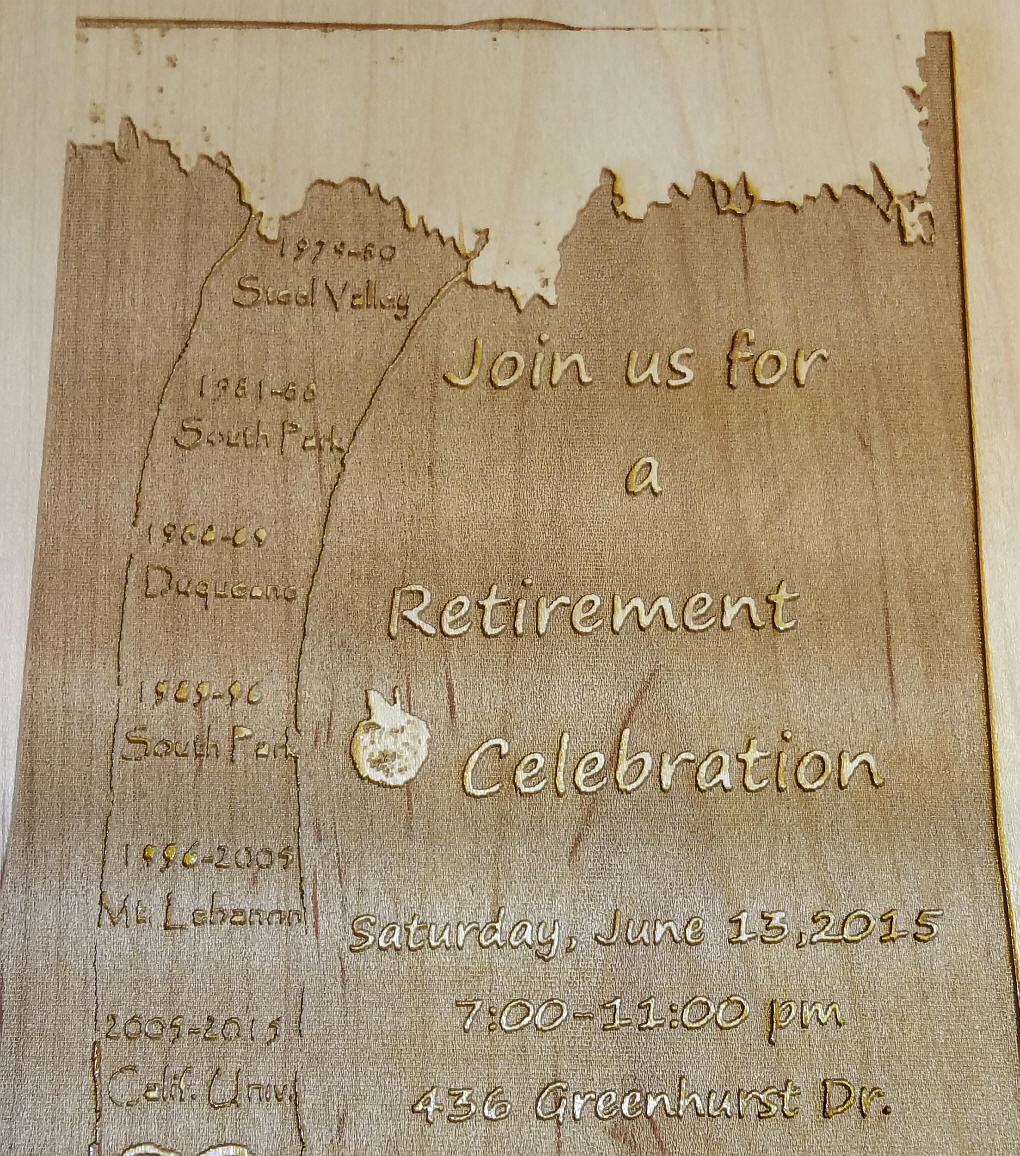 1979-80
Steel Valley
South Park
Duquesne
1989-96
South Park
1996-2005
Mt. Lebanon
2005-2015
Calif. Univ.
Join us for
a
Retirement
Celebration
Saturday, June 13,2015
7:00-11:00 pm
436 Greenhurst Dr.